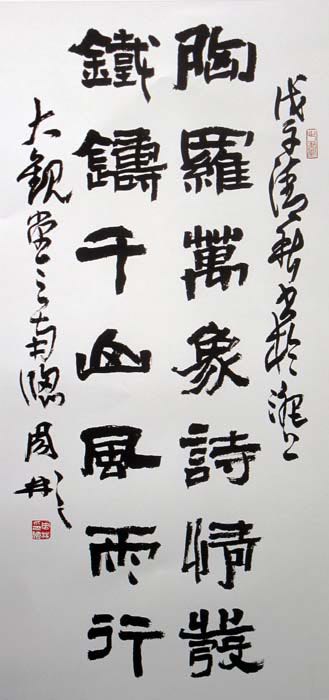 戊子清秋书於滬上
胸羅萬象詩情發
鐵鑄千山風雨行
大觀堂之南牕周